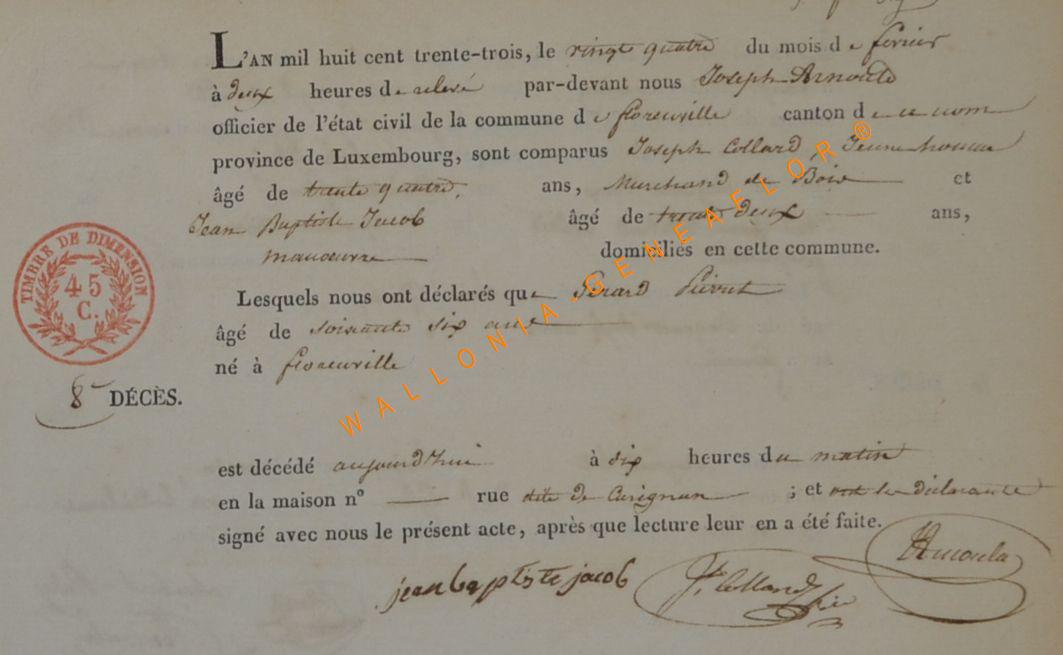 L'AN mil huit cent trente-trois, le vingt quatre du mois de fevrier
à deux heures de relevé par-devant nous Joseph Arnould
officier de l'état civil de la commune de florenville canton de ce nom
province de Luxembourg, sont comparus Joseph Collard, Jeune homme
âgé de trente quatre ans, Marchand de Bois et
Jean Baptiste Jacob âgé de trente deux ans,
manoeuvre domiciliés en cette commune.
Lesquels nous ont déclarés que Gérard
âgé de soixante six ans
né à florenville
8e DÉCÈS.
est décédé aujourd'hui à dix heures du matin
en la maison n° rue dite de Carignan ; et ont les déclarants
signé avec nous le présent acte, après que lecture leur en a été faite.
jean baptiste jacob J. Collard
TIMBRE DE DIMENSION
45
C.
WALLONIA-GENEAFLOR®